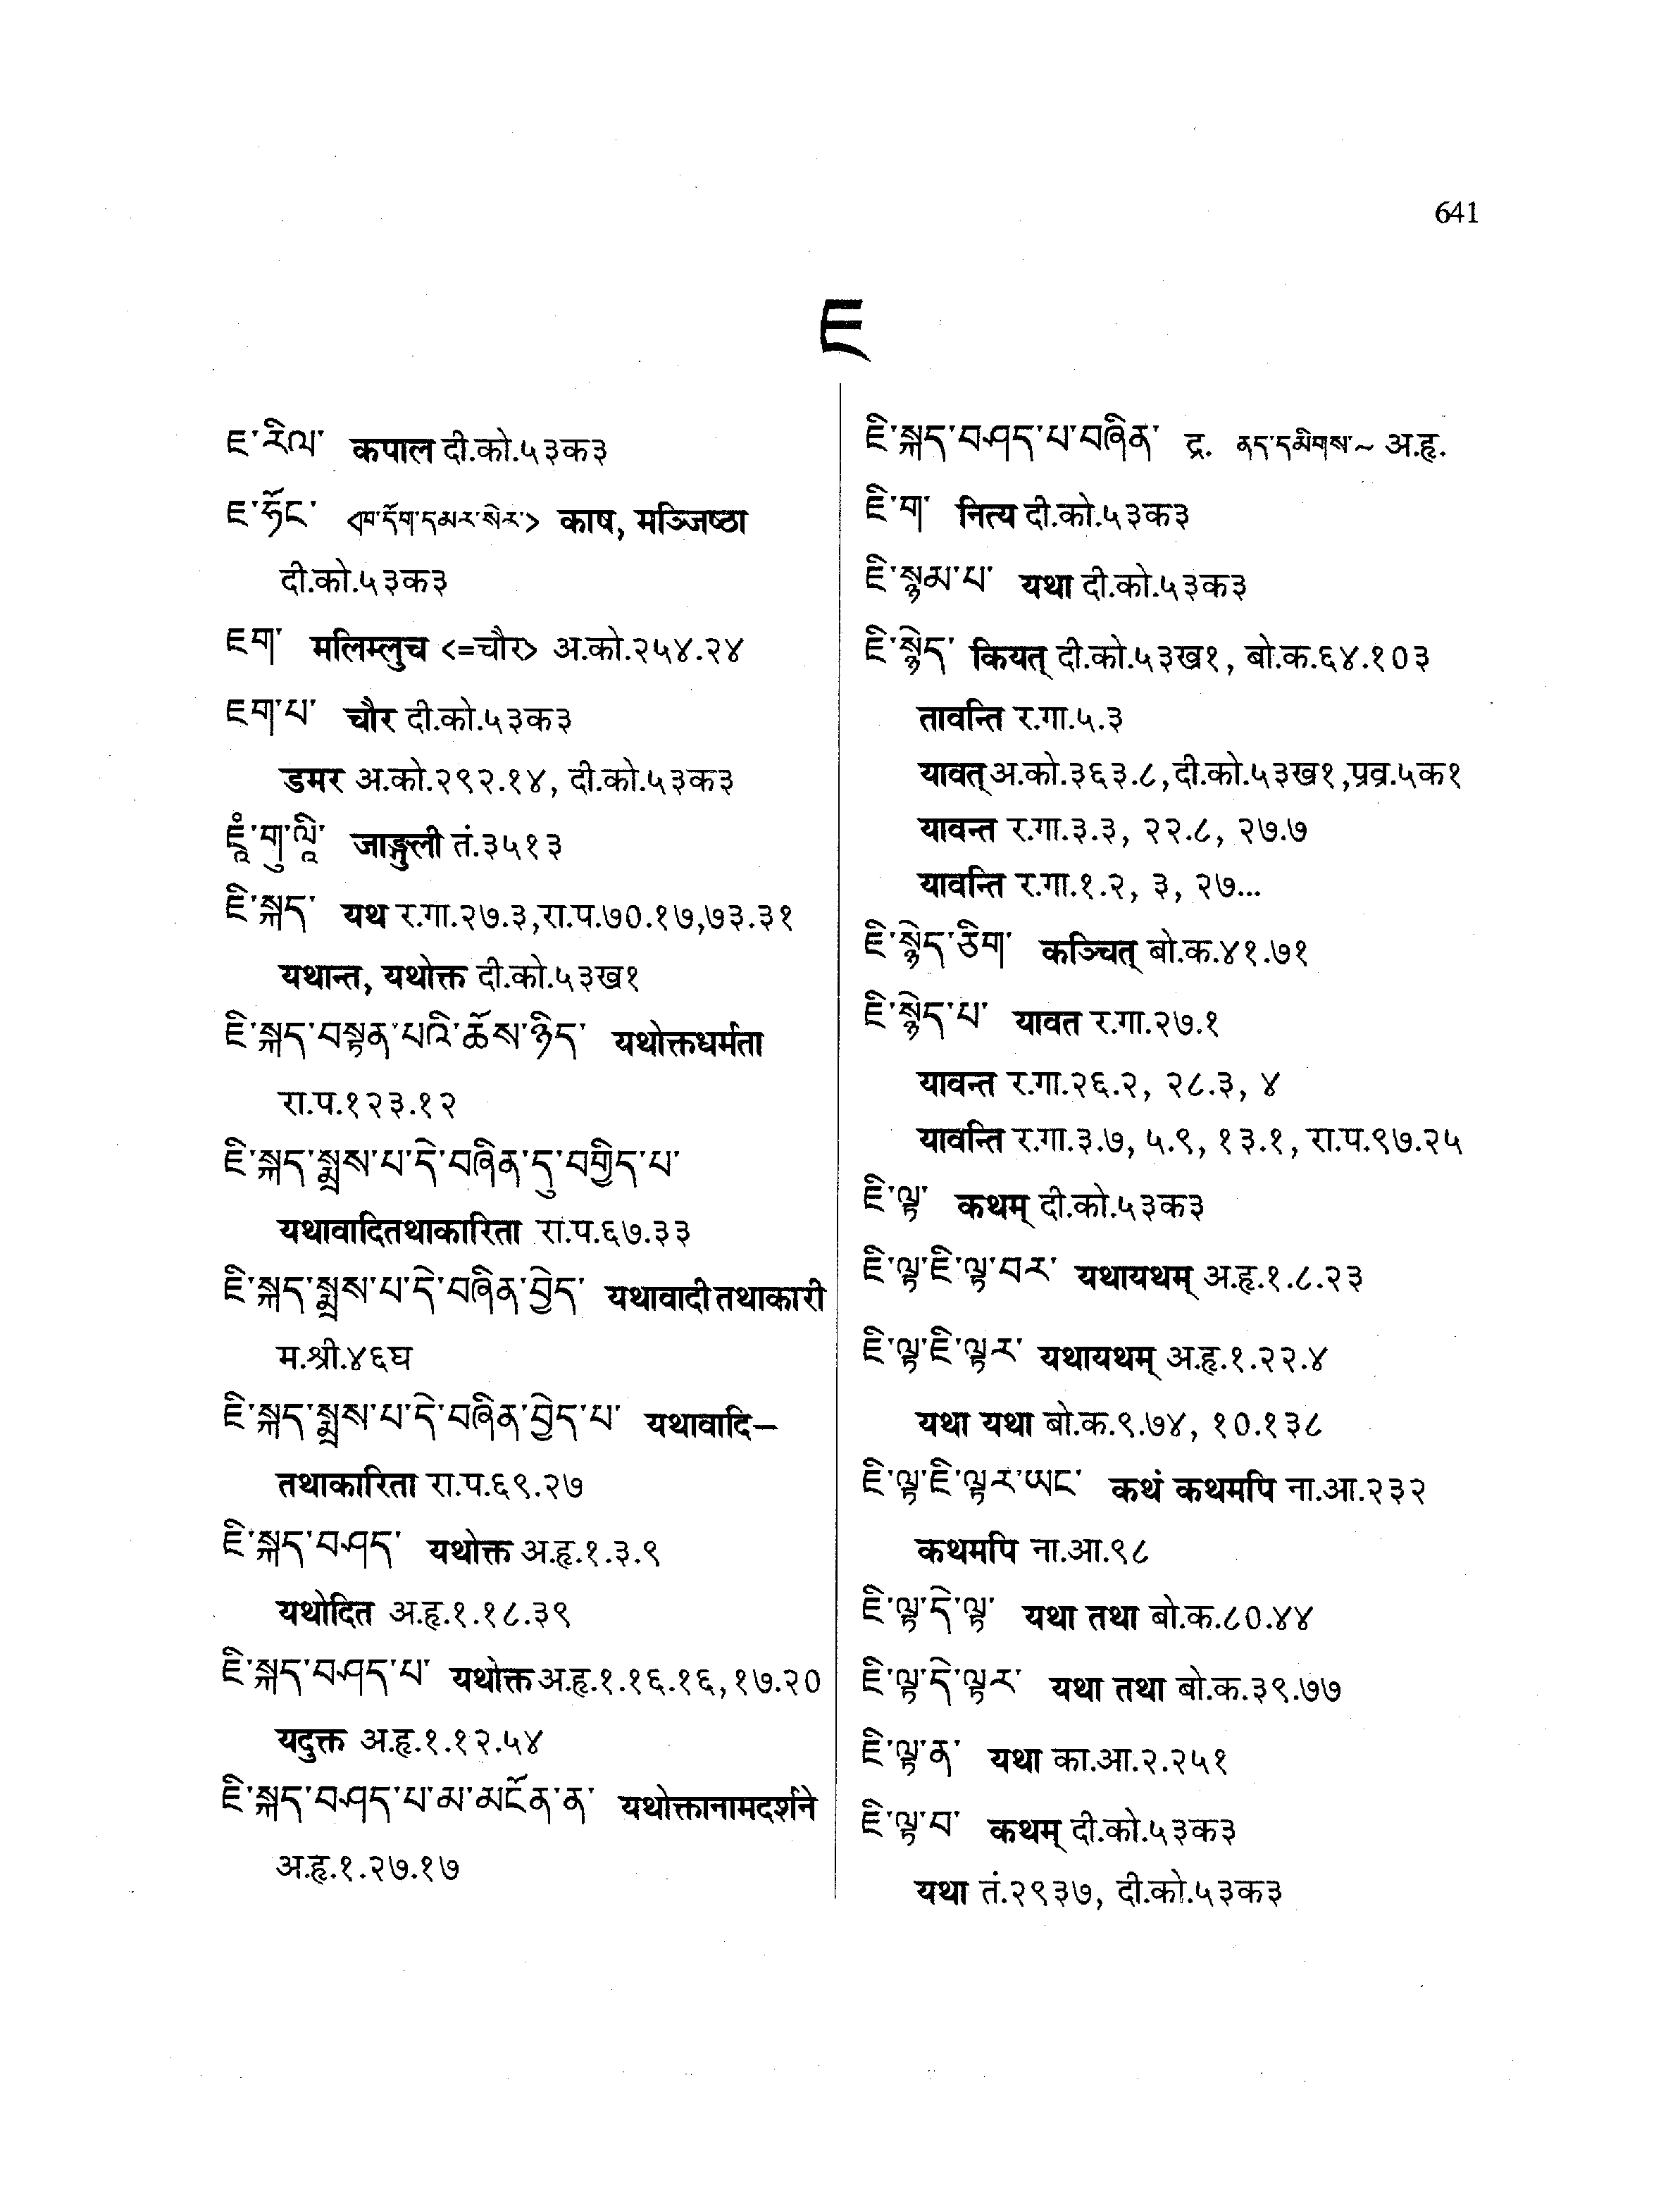 641
ཇ
ཇ་རིལ་ कपाल दी.को.५३क३
ཇ་ཧོང་ <ཁ་དོག་དམར་སེར་> काष, मञ्जिष्ठा
दी.को.५३क३
ཇག་ मलिम्लुच <=चौर> अ.को.२५४.२४
ཇག་པ་ चौर दी.को.५३क३
डमर अ.को.२९२.१४, दी.को.५३क३
ཇཱཾ་གུ་ལཱི་ जाङ्गुली तं.३५१३
ཇི་སྐད་ यथ र.गा.२७.३,रा.प.७०.१७,७३.३१
यथान्त, यथोक्त दी.को.५३ख१
ཇི་སྐད་བསྟན་པའི་ཆོས་ཉིད་ यथोक्तधर्मता
रा.प.१२३.१२
ཇི་སྐད་སྨྲས་པ་དེ་བཞིན་དུ་བགྱིད་པ་
यथावादितथाकारिता रा.प.६७.३३
ཇི་སྐད་སྨྲས་པ་དེ་བཞིན་བྱེད་ यथावादी तथाकारी
म.श्री.४६घ
ཇི་སྐད་སྨྲས་པ་དེ་བཞིན་བྱེད་པ་ यथावादि–
तथाकारिता रा.प.६९.२७
ཇི་སྐད་བཤད་ यथोक्त अ.हृ.१.३.९
यथोदित अ.हृ.१.१८.३९
ཇི་སྐད་བཤད་པ་ यथोक्त अ.हृ.१.१६.१६,१७.२०
यदुक्त अ.हृ.१.१२.५४
ཇི་སྐད་བཤད་པ་མ་མངོན་ན་ यथोक्तानामदर्शने
अ.हृ.१.२७.१७
ཇི་སྐད་བཤད་པ་བཞིན་ द्र. ནད་དམིགས་~ अ.हृ.
ཇི་ག་ नित्य दी.को.५३क३
ཇི་སྙམ་པ་ यथा दी.को.५३क३
ཇི་སྙེད་ कियत् दी.को.५३ख१, बो.क.६४.१०३
तावन्ति र.गा.५.३
यावत् अ.को.३६३.८,दी.को.५३ख१,प्रव्र.५क१
यावन्त र.गा.३.३, २२.८, २७.७
यावन्ति र.गा.१.२, ३, २७...
ཇི་སྙེད་ཅིག་ कञ्चित् बो.क.४१.७१
ཇི་སྙེད་པ་ यावत र.गा.२७.१
यावन्त र.गा.२६.२, २८.३, ४
यावन्ति र.गा.३.७, ५.९, १३.१, रा.प.९७.२५
ཇི་ལྟ་ कथम् दी.को.५३क३
ཇི་ལྟ་ཇི་ལྟ་བར་ यथायथम् अ.हृ.१.८.२३
ཇི་ལྟ་ཇི་ལྟར་ यथायथम् अ.हृ.१.२२.४
यथा यथा बो.क.९.७४, १०.१३८
ཇི་ལྟ་ཇི་ལྟར་ཡང་ कथं कथमपि ना.आ.२३२
कथमपि ना.आ.९८
ཇི་ལྟ་དེ་ལྟ་ यथा तथा बो.क.८०.४४
ཇི་ལྟ་དེ་ལྟར་ यथा तथा बो.क.३९.७७
ཇི་ལྟ་ན་ यथा का.आ.२.२५१
ཇི་ལྟ་བ་ कथम् दी.को.५३क३
यथा तं.२९३७, दी.को.५३क३